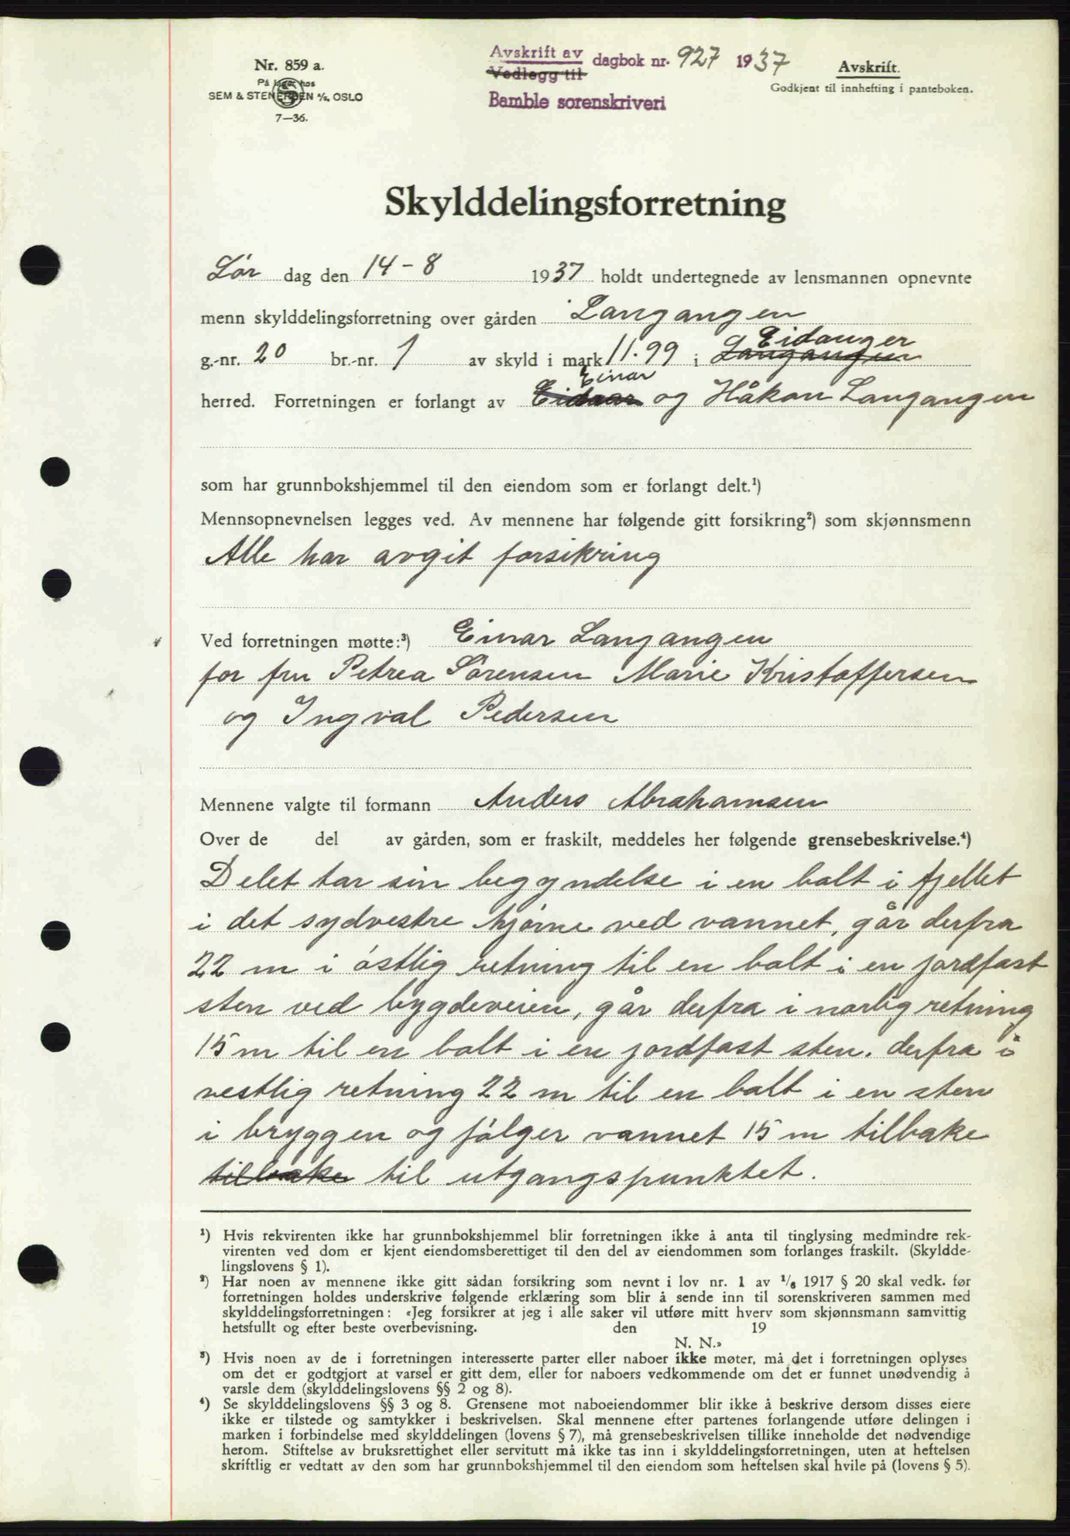 Nr. 859 a.
På lager hos
SEM & STENERSEN A/S, OSLO
7—36.
Avskrift av
Vedlegg til
dagbok nr. 927 1937
Bamble sorenskriveri
Avskrift.
Godkjent til innhefting i panteboken.
Skylddelingsforretning
Lør dag den 14-8 1937 holdt undertegnede av lensmannen opnevnte
menn skylddelingsforretning over gården Langangen
g.-nr. 20 br.-nr. 1 av skyld i mark 11.99 i Langangen Eidanger
herred. Forretningen er forlangt av Einar og Håkon Langangen
som har grunnbokshjemmel til den eiendom som er forlangt delt.¹)
Mennsopnevnelsen legges ved. Av mennene har følgende gitt forsikring²) som skjønnsmenn
Alle har avgit forsikring
Ved forretningen møtte:³) Einar Langangen
for fru Petrea Sørensen Marie Kristoffersen
og Ingval Pedersen
Mennene valgte til formann Anders Abrahamsen
Over de del av gården, som er fraskilt, meddeles her følgende grensebeskrivelse.⁴)
Delet tar sin begyndelse i en bolt i fjellet
i det sydvestre hjørne ved vannet, går derfra
22 m i østlig retning til en bolt i en jordfast
sten ved bygdeveien, går derfra i norlig retning
15 m til en bolt i en jordfast sten. derfra i
vestlig retning 22 m til en bolt i en sten
i bryggen og følger vannet 15 m tilbake
tilbake til utgangspunktet.
¹) Hvis rekvirenten ikke har grunnbokshjemmel blir forretningen ikke å anta til tinglysing medmindre rek-
virenten ved dom er kjent eiendomsberettiget til den del av eiendommen som forlanges fraskilt. (Skyldde-
lingslovens § 1).
²) Har noen av mennene ikke gitt sådan forsikring som nevnt i lov nr. 1 av ¹/₆ 1917 § 20 skal vedk. før
forretningen holdes underskrive følgende erklæring som blir å sende inn til sorenskriveren sammen med
skylddelingsforretningen: «Jeg forsikrer at jeg i alle saker vil utføre mitt hverv som skjønnsmann samvittig
hetsfullt og efter beste overbevisning. den 19
N. N.»
³) Hvis noen av de i forretningen interesserte parter eller naboer ikke møter, må det i forretningen oplyses
om det er godtgjort at varsel er gitt dem, eller for naboers vedkommende om det er funnet unødvendig å
varsle dem (skylddelingslovens §§ 2 og 8).
⁴) Se skylddelingslovens §§ 3 og 8. Grensene mot naboeiendommer blir ikke å beskrive dersom disses eiere
ikke er tilstede og samtykker i beskrivelsen. Skal mennene efter partenes forlangende utføre delingen i
marken i forbindelse med skylddelingen (lovens § 7), må grensebeskrivelsen tillike inneholde det nødvendige
herom. Stiftelse av bruksrettighet eller servitutt må ikke tas inn i skylddelingsforretningen, uten at heftelsen
skriftlig er vedtatt av den som har grunnbokshjemmel til den eiendom som heftelsen skal hvile på (lovens § 5).